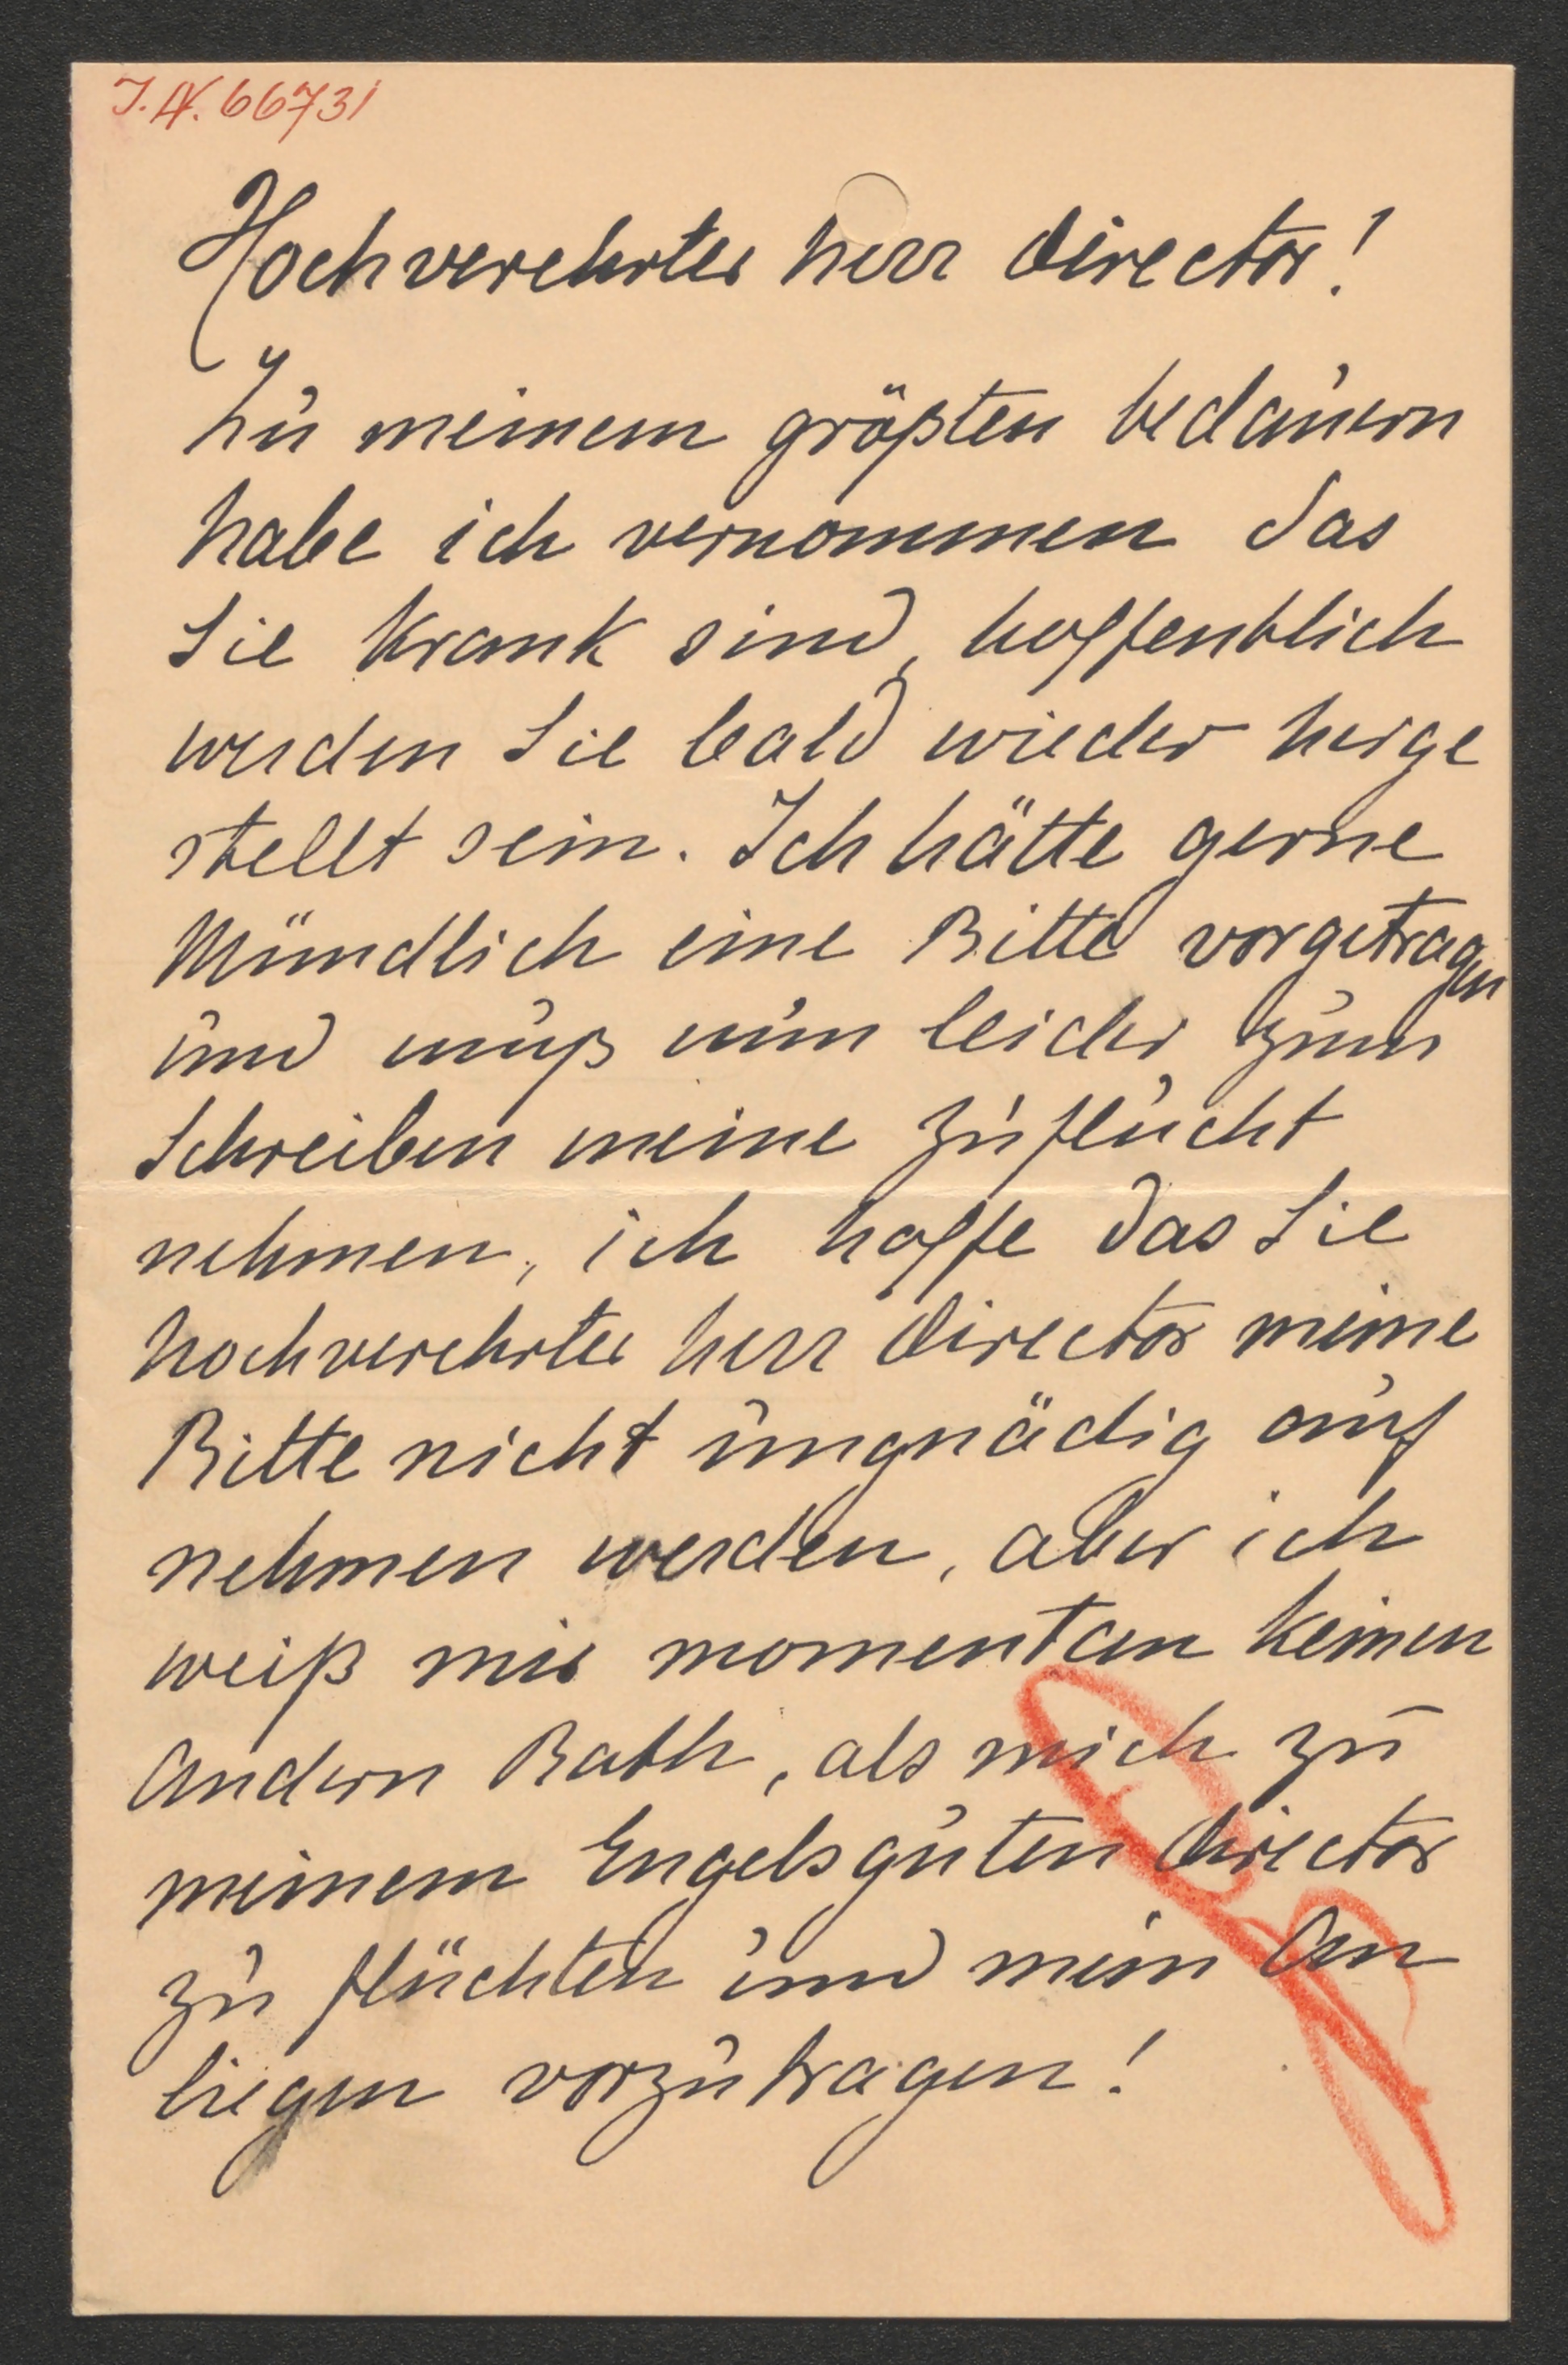 J.N. 66731
Hochverehrter herr director!
Zu meinem größten bedauern
habe ich vernommen das
Sie krank sind, hoffentlich
werden Sie bald wieder herge
stellt sein. Ich hätte gerne
Mündlich eine Bitte vorgetragen
und muß nun leider zum
Schreiben meine zuflucht
nehmen, ich hoffe das Sie
hochverehrter herr director meine
Bitte nicht ungnädig auf
nehmen werden, aber ich
weiß mir momentan keinen
andern Rath, als mich zu
meinem Engelsguten director
zu flüchten und mein An
liegen vorzutragen!